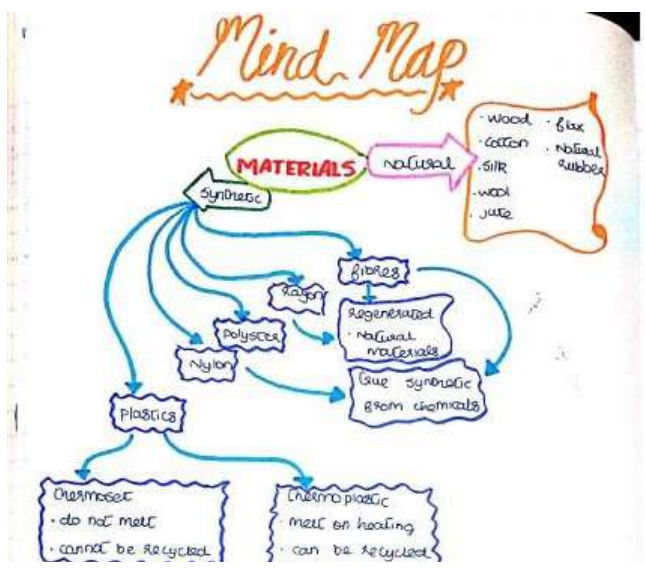 Mind Map
MATERIALS
Natural
· wood
· cotton
· Silk
· wool
· jute
· flax
· Natural
rubber
Synthetic
fibres
Rayon
Polyster
Nylon
Plastics
Regenerated
· Natural
materials
True synthetic
from chemicals
Thermoset
· do not melt
· cannot be recycled
Thermoplastic
· melt on heating
· can be recycled